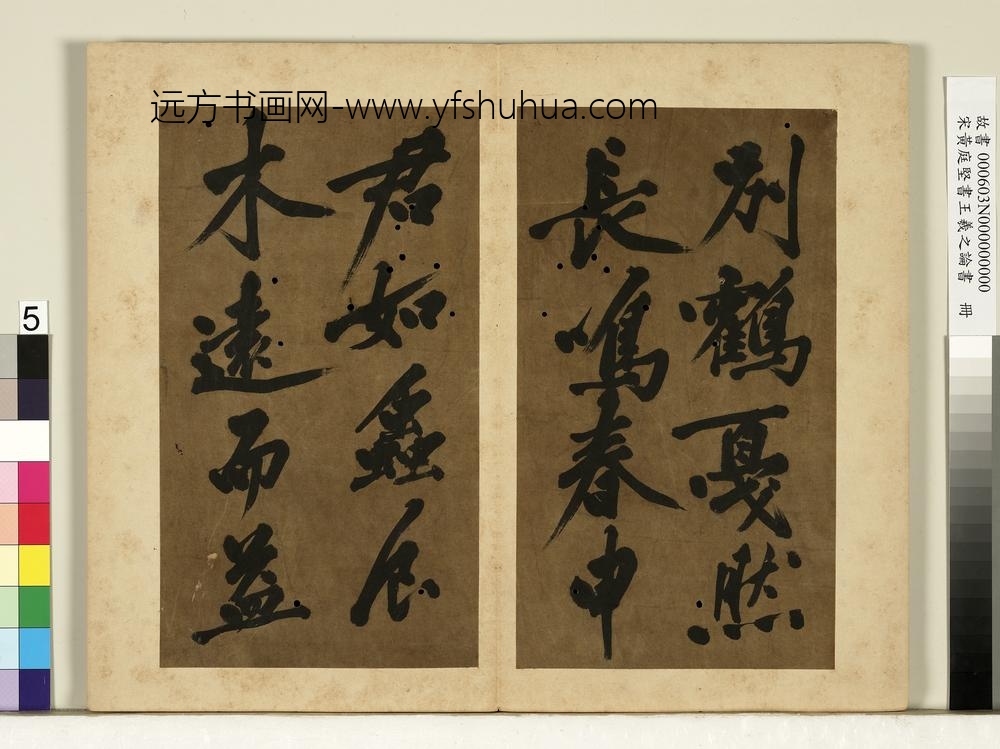 远方书画网-www.yfshuhua.com
別鶴戞然
長鳴春申
君如蠡食
木遠而益
故書 000603N000000000
宋黃庭堅書王羲之論書 冊
5